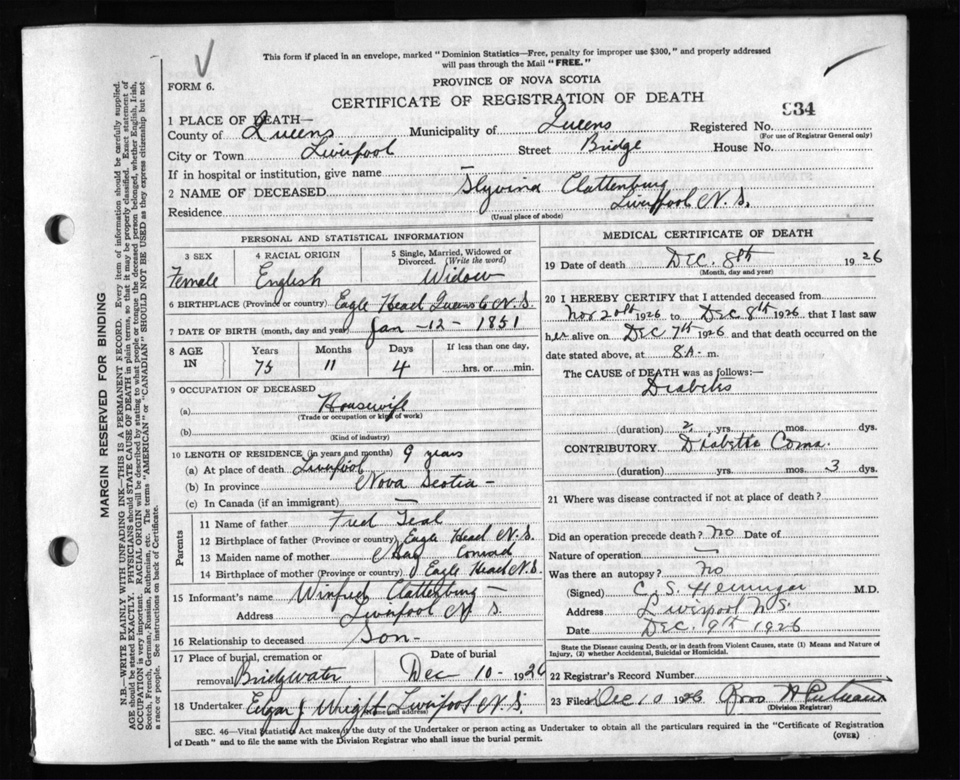 This form if placed in an envelope, marked "Dominion Statistics—Free, penalty for improper use $300," and properly addressed
will pass through the Mail "FREE."
FORM 6.
PROVINCE OF NOVA SCOTIA
CERTIFICATE OF REGISTRATION OF DEATH
934
1 PLACE OF DEATH—
County of Queens Municipality of Queens Registered No.
(For use of Registrar General only)
City or Town Liverpool Street Bridge House No.
If in hospital or institution, give name —
2 NAME OF DECEASED Slyvina Clattenburg
Residence Liverpool N. S.
(Usual place of abode)
PERSONAL AND STATISTICAL INFORMATION
3 SEX 4 RACIAL ORIGIN 5 Single, Married, Widowed or
Divorced. (Write the word)
Female English Widow
6 BIRTHPLACE (Province or country) Eagle Head Queens Co N.S.
7 DATE OF BIRTH (month, day and year) Jan -12- 1851
8 AGE IN Years Months Days If less than one day,
75 11 4 hrs. or min.
9 OCCUPATION OF DECEASED
(a) Housewife
(Trade or occupation or kind of work)
(b)
(Kind of industry)
10 LENGTH OF RESIDENCE (in years and months) 9 years
(a) At place of death Liverpool
(b) In province Nova Scotia -
(c) In Canada (if an immigrant) —
Parents
11 Name of father Fred Teal
12 Birthplace of father (Province or country) Eagle Head N.S.
13 Maiden name of mother May Conrad
14 Birthplace of mother (Province or country) Eagle Head N.S.
15 Informant's name Winfred Clattenburg -
Address Liverpool N. S.
16 Relationship to deceased Son -
17 Place of burial, cremation or Date of burial
removal Bridgwater Dec 10 - 1926
18 Undertaker Edgar J Wright Liverpool N.S.
(Name and address)
MEDICAL CERTIFICATE OF DEATH
19 Date of death Dec. 8th 1926
(Month, day and year)
20 I HEREBY CERTIFY that I attended deceased from
Nov 20th 1926 to Dec 8th 1926, that I last saw
her alive on Dec 7th 1926 and that death occurred on the
date stated above, at 8A. m.
The CAUSE of DEATH was as follows:—
Diabetis
(duration) 2 yrs. mos. dys.
CONTRIBUTORY Diabetic Coma.
(duration) yrs. mos. 3 dys.
21 Where was disease contracted if not at place of death?
Did an operation precede death? no Date of
Nature of operation —
Was there an autopsy? no
(Signed) C. S. M.D.
Address Liverpool N.S.
Date Dec. 9th 1926
State the Disease causing Death, or in death from Violent Causes, state (1) Means and Nature of
Injury, (2) whether Accidental, Suicidal or Homicidal.
22 Registrar's Record Number
23 Filed Dec 10 1926
(Division Registrar)
SEC. 46—Vital Statistics Act makes it the duty of the Undertaker or person acting as Undertaker to obtain all the particulars required in the "Certificate of Registration
of Death" and to file the same with the Division Registrar who shall issue the burial permit.
(OVER)
MARGIN RESERVED FOR BINDING
N.B.—WRITE PLAINLY WITH UNFADING INK—THIS IS A PERMANENT RECORD. Every item of information should be carefully supplied.
AGE should be stated EXACTLY. PHYSICIANS should STATE CAUSE OF DEATH in plain terms, so that it may be properly classified. Exact statement of
OCCUPATION is very important. RACIAL ORIGIN will be described by stating to what people or tongue the deceased person belonged, whether English, Irish,
Scotch, French, German, Russian, Ruthenian, etc. The terms "AMERICAN" or "CANADIAN" SHOULD NOT BE USED as they express citizenship but not
a race or people. See instructions on back of Certificate.